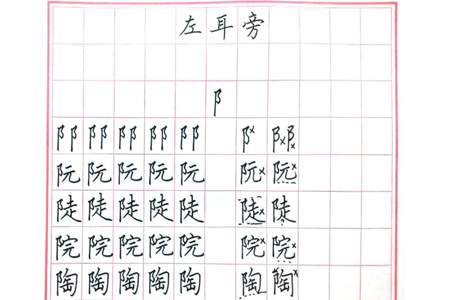 左耳旁
阝
阝阝 阝阝 阝阝 阝阝 阝阝 阝× 阝×阝×
阮 阮 阮 阮 阮 阮× 阮×
陡 陡 陡 陡 陡 陡× 陡
院 院 院 院 院 院× 院×
陶 陶 陶 陶 陶 陶× 陶×